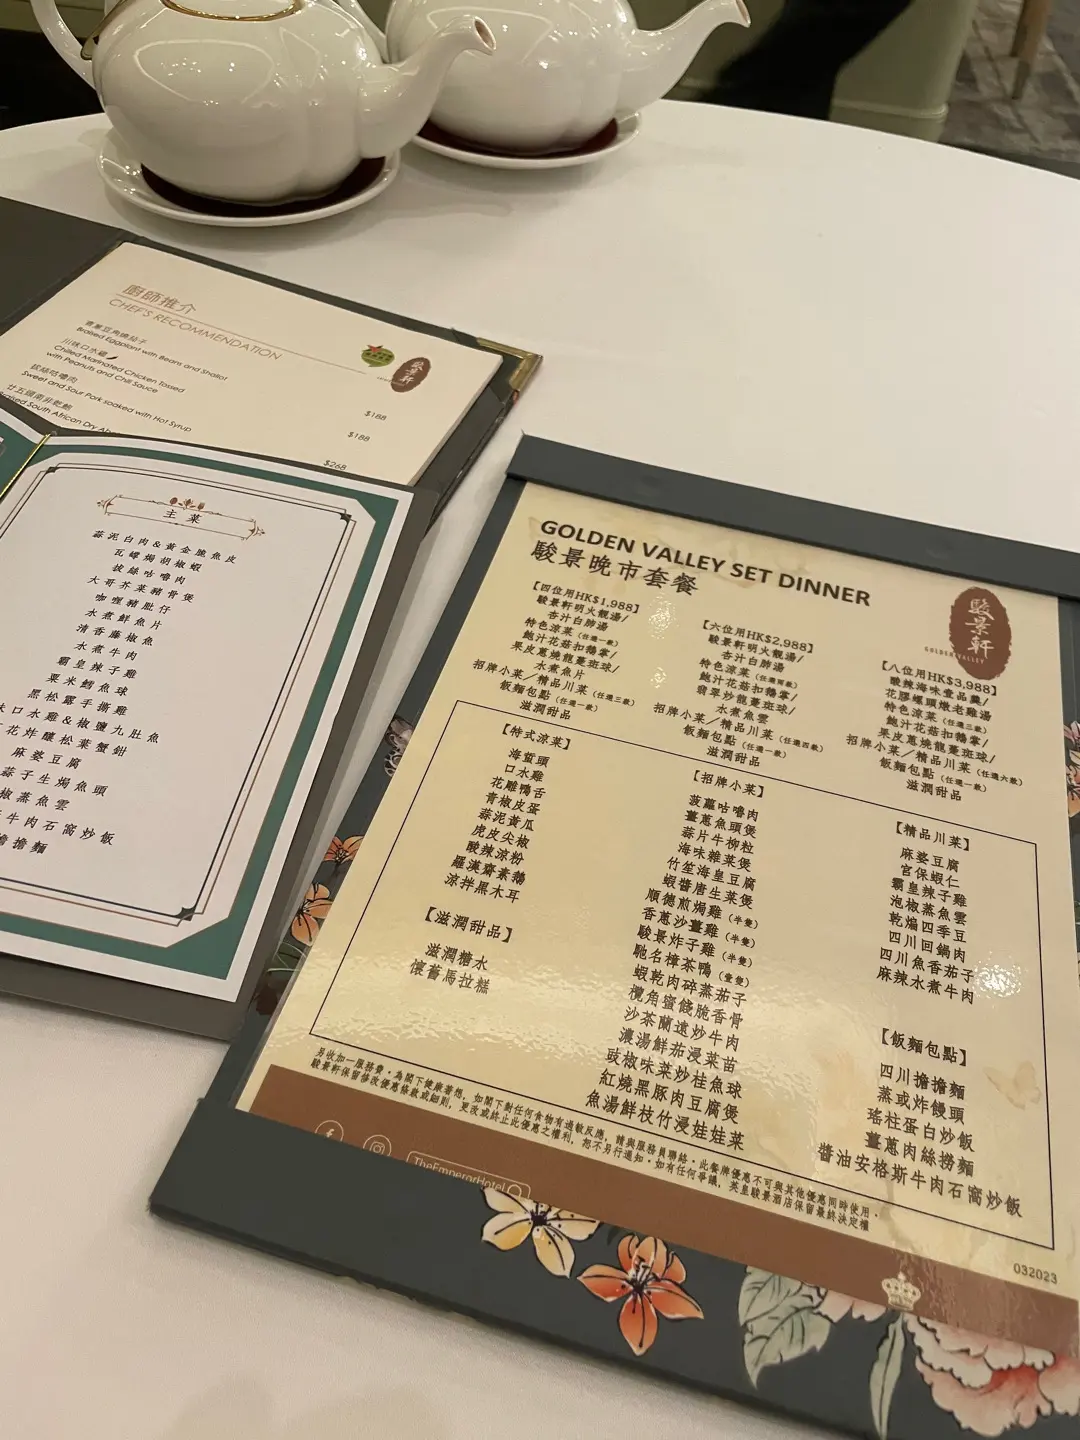 廚師推介
CHEF'S RECOMMENDATION
Braised Eggplant with Beans and Shallot
$188
川味口水雞
Chilled Marinated Chicken Tossed
with Peanuts and Chili Sauce
$188
拔絲咕嚕肉
Sweet and Sour Pork soaked with Hot Syrup
$268
廿五頭南非乾鮑
Braised South African Dry
駿景軒
主菜
蒜泥白肉&黃金脆魚皮
瓦罉焗胡椒蝦
拔絲咕嚕肉
大哥芥菜豬骨煲
咖喱豬肚仔
水煮鮮魚片
清香藤椒魚
水煮牛肉
霸皇辣子雞
粟米鱈魚球
黑松露手撕雞
口水雞&椒鹽九肚魚
花炸釀松葉蟹鉗
麻婆豆腐
蒜子生焗魚頭
椒蒸魚雲
牛肉石窩炒飯
擔擔麵
GOLDEN VALLEY SET DINNER
駿景晚市套餐
駿景軒
GOLDEN VALLEY
【四位用HK$1,988】
駿景軒明火靚湯/
杏汁白肺湯
特色涼菜(任選一款)
鮑汁花菇扣鵝掌/
果皮蔥燒龍躉斑球/
水煮魚片
招牌小菜/精品川菜(任選三款)
飯麵包點(任選一款)
滋潤甜品
【六位用HK$2,988】
駿景軒明火靚湯/
杏汁白肺湯
特色涼菜(任選兩款)
鮑汁花菇扣鵝掌/
翡翠炒龍躉斑球/
水煮魚雲
招牌小菜/精品川菜(任選四款)
飯麵包點(任選一款)
滋潤甜品
【八位用HK$3,988】
酸辣海味壹品羹/
花膠螺頭燉老雞湯
特色涼菜(任選三款)
鮑汁花菇扣鵝掌/
果皮蔥燒龍躉斑球/
招牌小菜/精品川菜(任選六款)
飯麵包點(任選一款)
滋潤甜品
【特式涼菜】
海蜇頭
口水雞
花雕鴨舌
青椒皮蛋
蒜泥黃瓜
虎皮尖椒
酸辣涼粉
羅漢齋素鵝
涼拌黑木耳
【滋潤甜品】
滋潤糖水
懷舊馬拉糕
【招牌小菜】
菠蘿咕嚕肉
薑蔥魚頭煲
蒜片牛柳粒
海味雜菜煲
竹笙海皇豆腐
蝦醬唐生菜煲
順德煎焗雞(半隻)
香蔥沙薑雞(半隻)
駿景炸子雞(半隻)
馳名樟茶鴨(壹隻)
蝦乾肉碎蒸茄子
欖角蜜餞脆香骨
沙茶蘭遠炒牛肉
濃湯鮮茄浸菜苗
豉椒味菜炒桂魚球
紅燒黑豚肉豆腐煲
魚湯鮮枝竹浸娃娃菜
【精品川菜】
麻婆豆腐
宮保蝦仁
霸皇辣子雞
泡椒蒸魚雲
乾煸四季豆
四川回鍋肉
四川魚香茄子
麻辣水煮牛肉
【飯麵包點】
四川擔擔麵
蒸或炸饅頭
瑤柱蛋白炒飯
薑蔥肉絲撈麵
醬油安格斯牛肉石窩炒飯
另收加一服務費。為閣下健康著想，如閣下對任何食物有過敏反應，請與服務員聯絡。此餐牌優惠不可與其他優惠同時使用。
駿景軒保留修改優惠條款或細則，更改或終止此優惠之權利，恕不另行通知。如有任何爭議，英皇駿景酒店保留最終決定權
TheEmperorHotel
032023